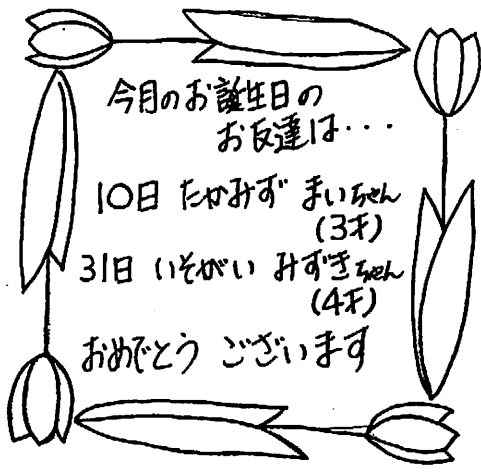 今月のお誕生日の
お友達は・・・
10日 たかみず まいちゃん
(3才)
31日 いそがい みずきちゃん
(4才)
おめでとう ございます